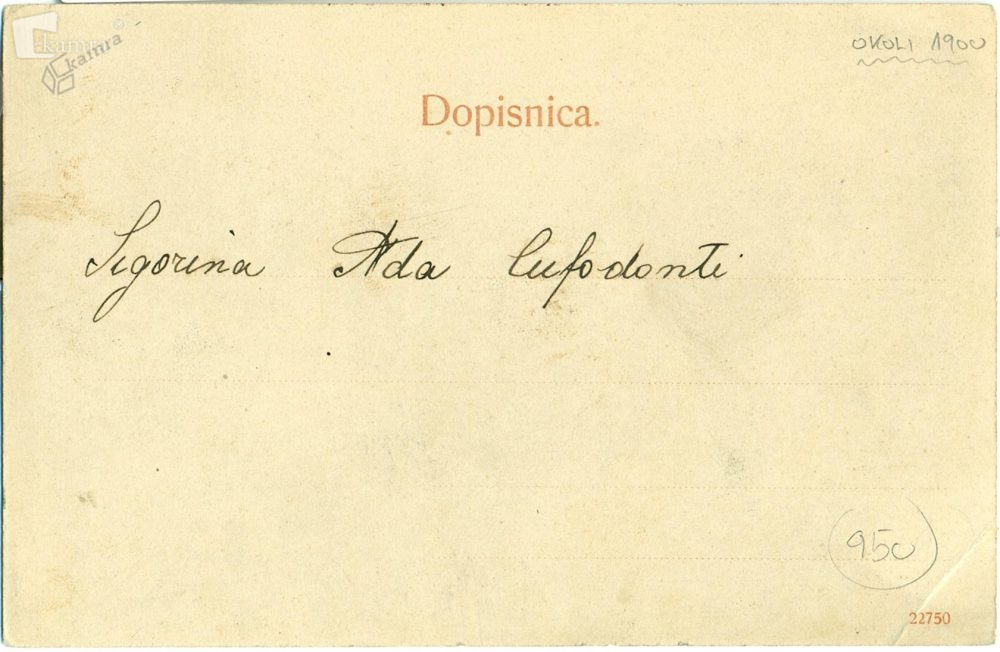 kamra
kamra
OKOLI 1900
Dopisnica.
Sigorina Ada Cufodonti
950
22750